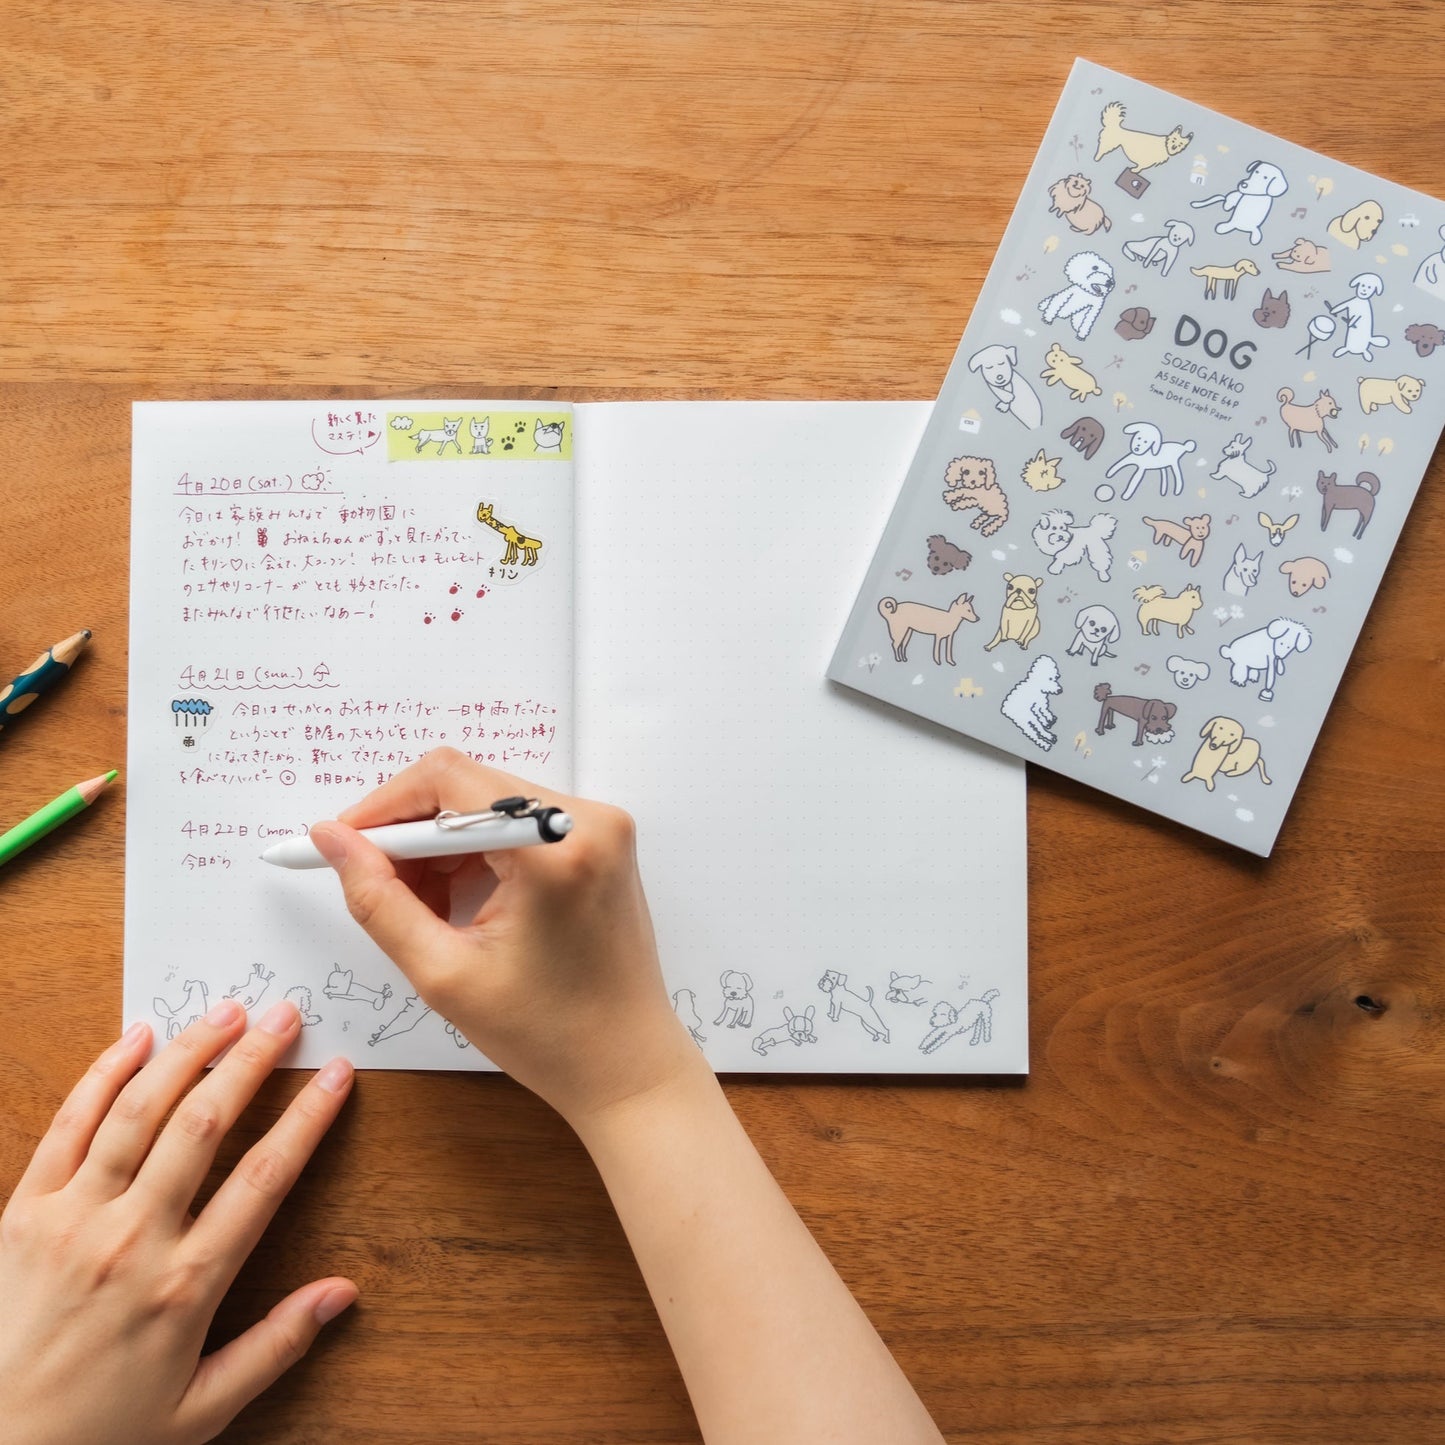 新しく買った
マステ！
4月20日(sat.)
今日は家族みんなで動物園に
おでかけ！ おねえちゃんがずっと見たがってい
たキリン♡に会えて、大コーフン！ わたしはモルモット
のエサやりコーナーがとても好きだった。
またみんなで行きたいなあー！
キリン
4月21日(sun.)
雨
今日はせっかくのお休みだけど一日中雨だった。
ということで部屋の大そうじをした。夕方から小降り
になってきたから、新しくできたカフェで
めのドーナッツ
を食べてハッピー◎ 明日から また
4月22日(mon.)
今日から
DOG
SOZOGAKKO
A5 SIZE NOTE 64P
5mm Dot Graph Paper